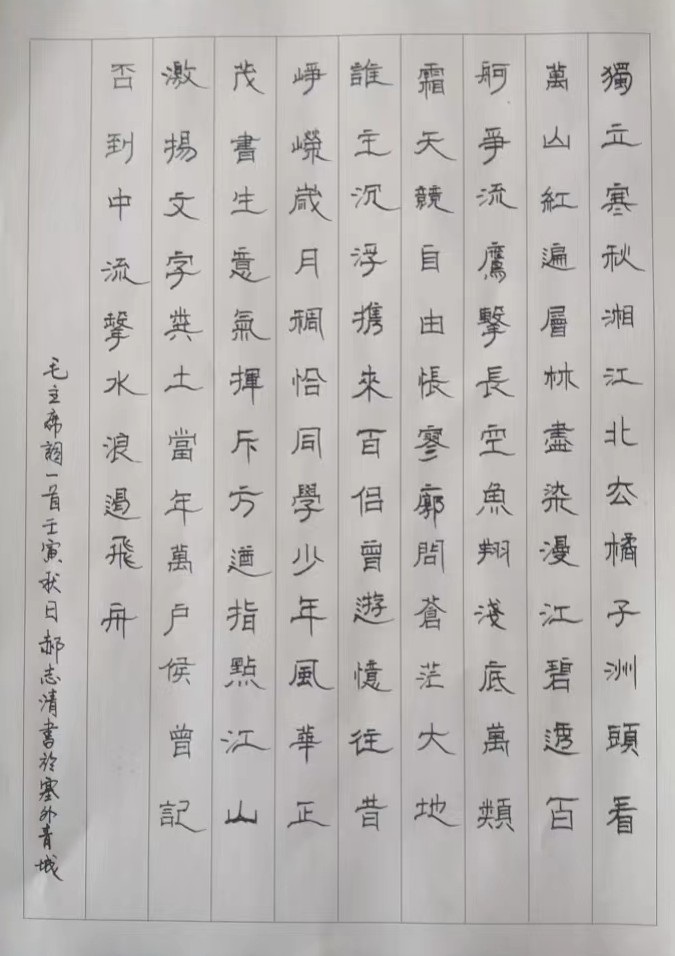 獨立寒秋湘江北厺橘子洲頭看
萬山紅遍層林盡染漫江碧透百
舸爭流鷹擊長空魚翔淺底萬類
霜天競自由悵寥廓問蒼茫大地
誰主沉浮攜來百侶曾遊憶往昔
崢嶸歲月稠恰同學少年風華正
茂書生意氣揮斥方遒指點江山
激揚文字糞土當年萬戶侯曾記
否到中流擊水浪遏飛舟
毛主席詞一首壬寅秋日郝志清書於塞外青城